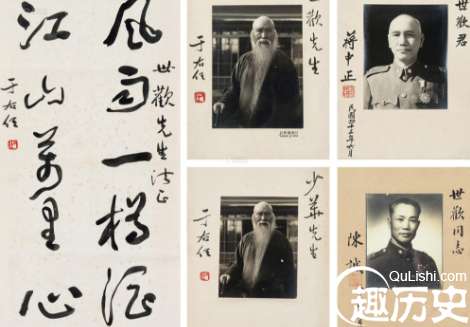 風雨一樽酒
江山萬里心
世歡先生法正
于右任
世歡先生
于右任
世歡君
蔣中正
少華先生
于右任
世歡同志
陳
QuLishi.com
趣历史